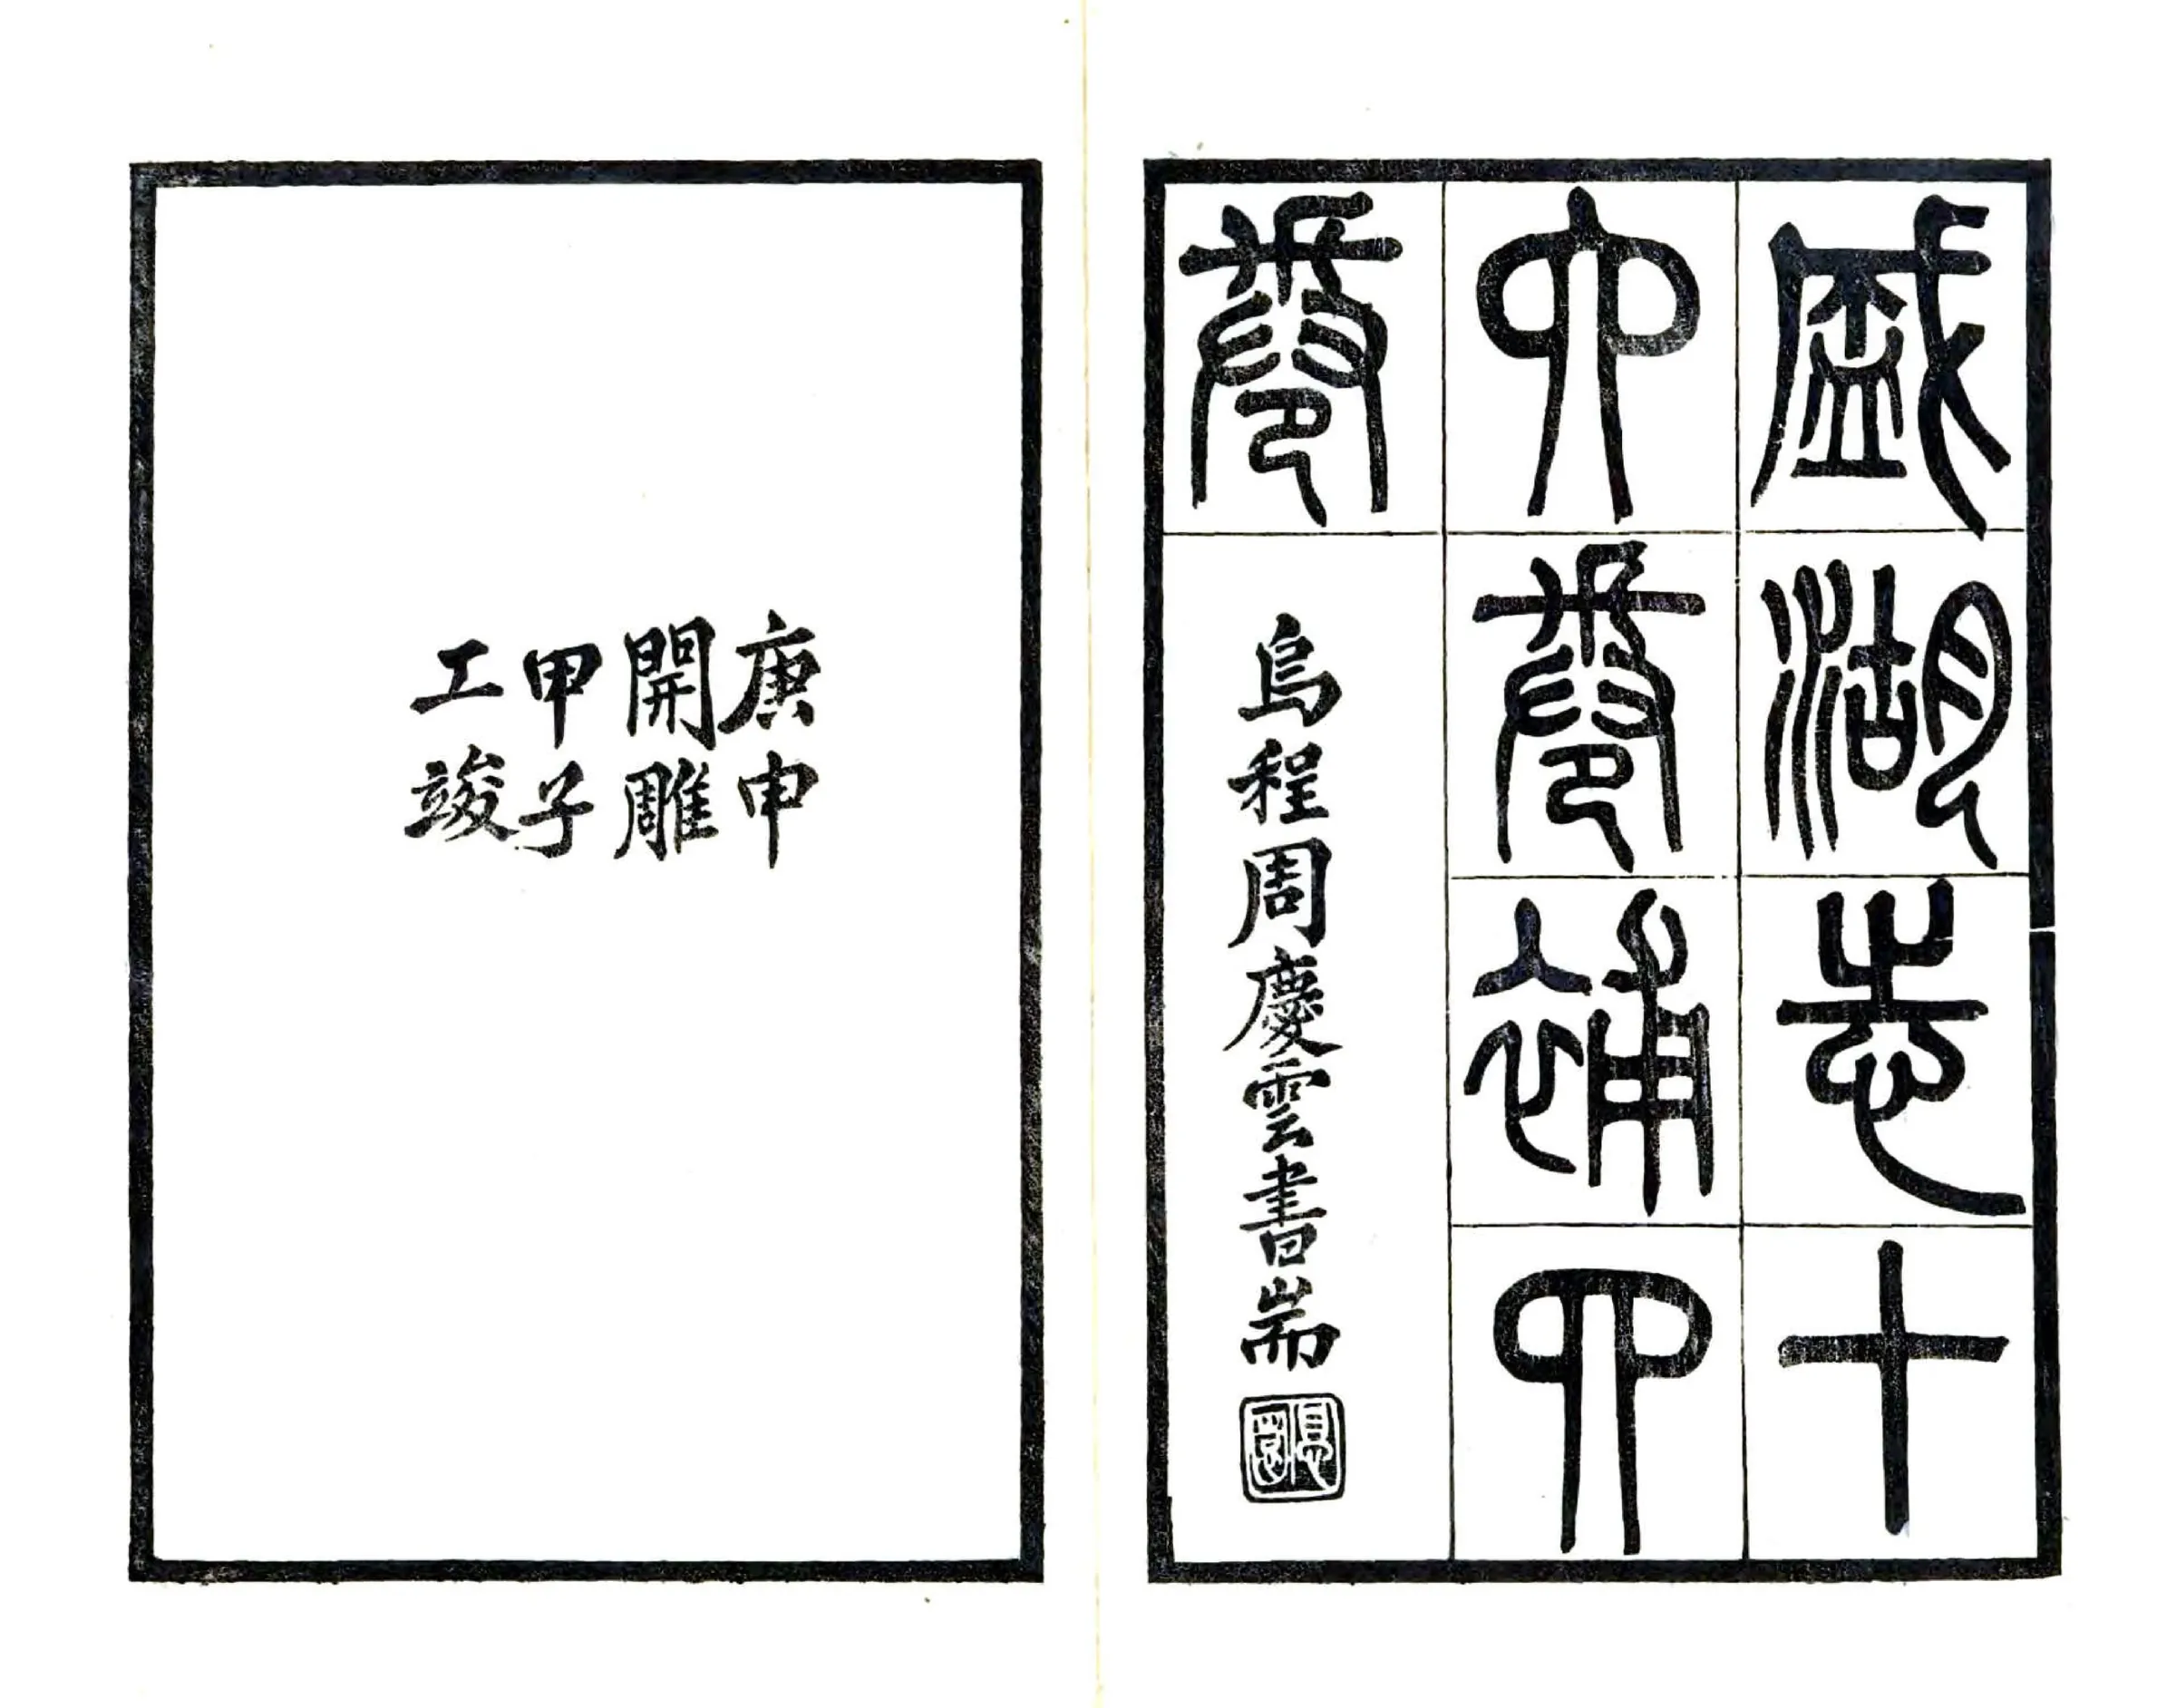 盛湖志十
四卷補四
卷
烏程周慶雲書耑
庚申
開雕
甲子
工竣